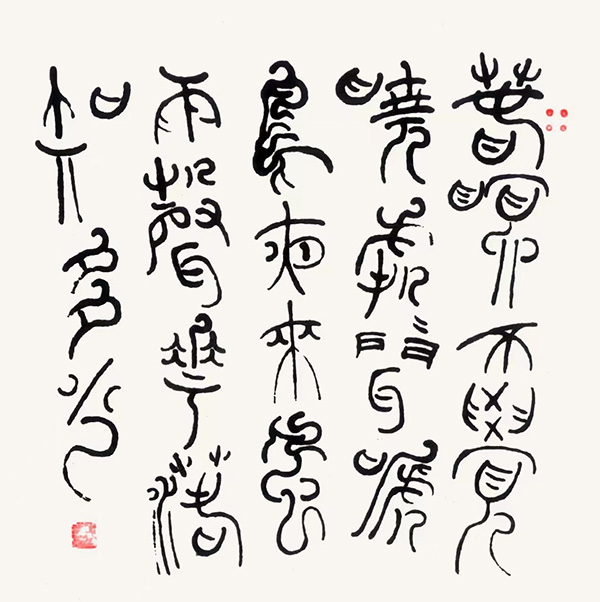 春眠不覺
曉處〻聞嗁
鳥夜來風
雨聲華落
知多少